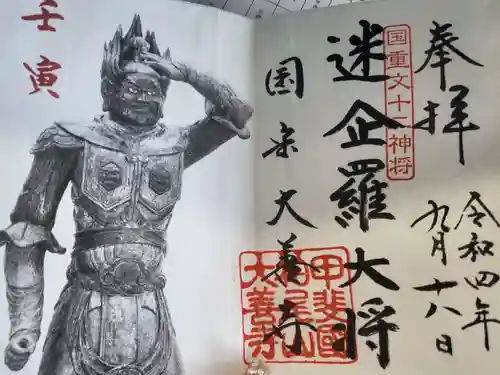 奉拝
令和四年
九月十八日
国重文十二神将
迷企羅大将
国宗大善寺
甲斐國
柏尾山
大善寺
壬寅